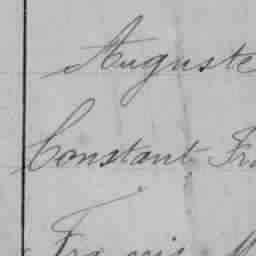 Auguste
Constant Fr
Francis